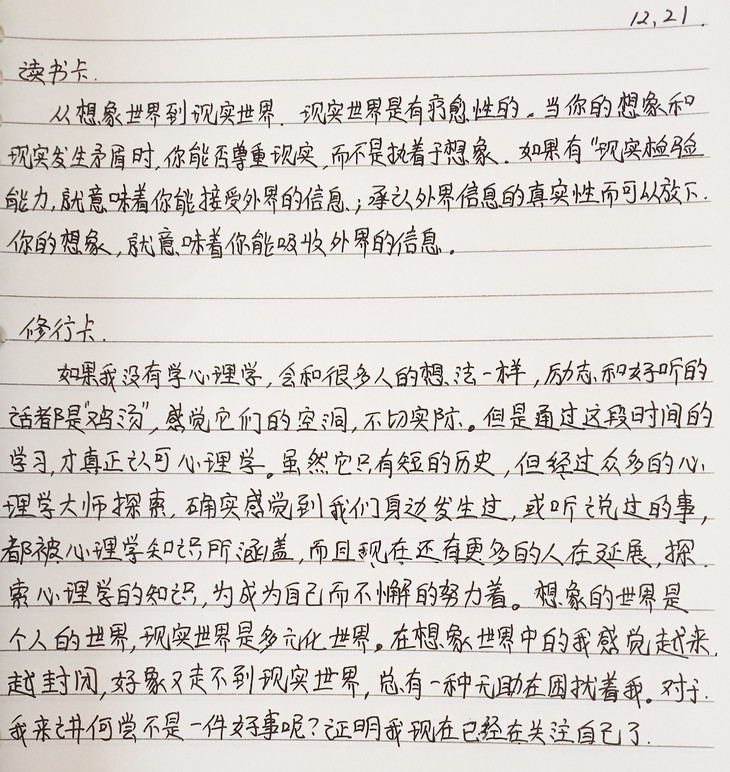 12,21.
读书卡.
从想象世界到现实世界. 现实世界是有疗愈性的。当你的想象和
现实发生矛盾时,你能否尊重现实,而不是执着于想象. 如果有“现实检验
能力,就意味着你能接受外界的信息;承认外界信息的真实性而可以放下.
你的想象,就意味着你能吸收外界的信息。
修行卡.
如果我没有学心理学,会和很多人的想法一样,励志和好听的
话都是“鸡汤”,感觉它们的空洞,不切实际。但是通过这段时间的
学习,才真正认可心理学。虽然它只有短的历史,但经过众多的心
理学大师探索,确实感觉到我们身边发生过,或听说过的事,
都被心理学知识所涵盖,而且现在还有更多的人在延展,探.
索心理学的知识,为成为自己而不懈的努力着。想象的世界是
个人的世界,现实世界是多元化世界。在想象世界中的我感觉越来.
越封闭,好象又走不到现实世界,总有一种无助在困扰着我。对于.
我来讲何尝不是一件好事呢?证明我现在已经在关注自己了.